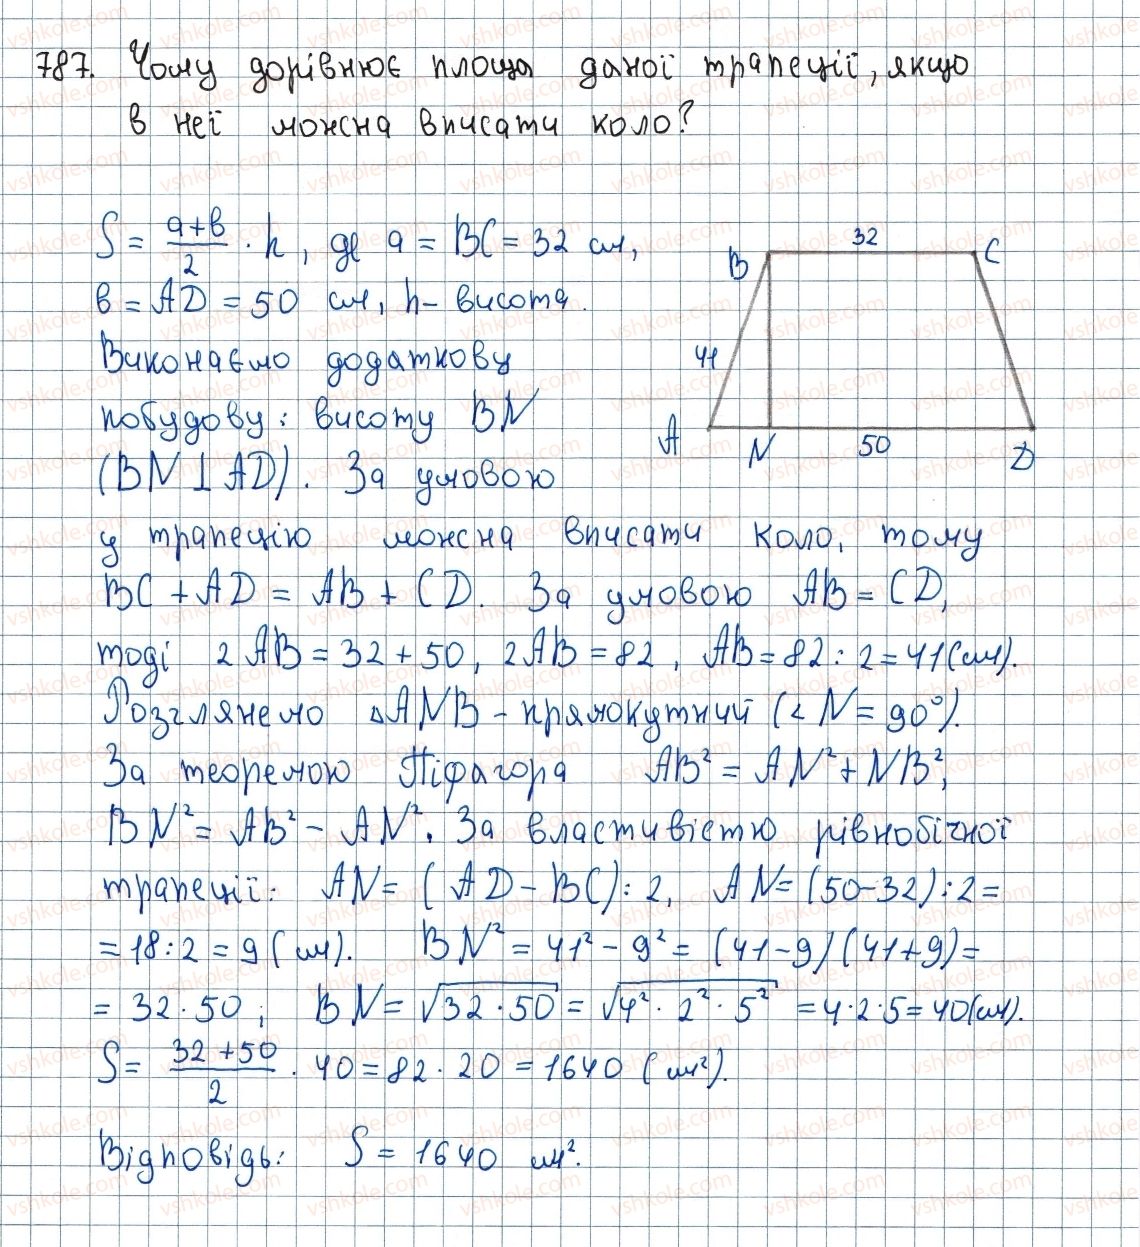 787. Чому дорівнює площа даної трапеції, якщо
в неї можна вписати коло?
S = (a+b)/2 · h, де a = BC = 32 см,
b = AD = 50 см, h – висота.
Виконаємо додаткову
побудову: висоту BN
(BN ⊥ AD). За умовою
у трапецію можна вписати коло, тому
BC + AD = AB + CD. За умовою AB = CD,
тоді 2 AB = 32 + 50, 2 AB = 82, AB = 82 : 2 = 41 (см).
Розглянемо △ANB – прямокутний (∠N = 90°).
За теоремою Піфагора AB² = AN² + NB²,
BN² = AB² – AN². За властивістю рівнобічної
трапеції: AN = (AD – BC) : 2, AN = (50–32) : 2 =
= 18 : 2 = 9 (см). BN² = 41² – 9² = (41–9)(41+9) =
= 32 · 50; BN = √(32 · 50) = √(4² · 2² · 5²) = 4·2·5 = 40 (см).
S = (32+50)/2 · 40 = 82 · 20 = 1640 (см²).
Відповідь: S = 1640 см².
B
32
C
41
A
N
50
D